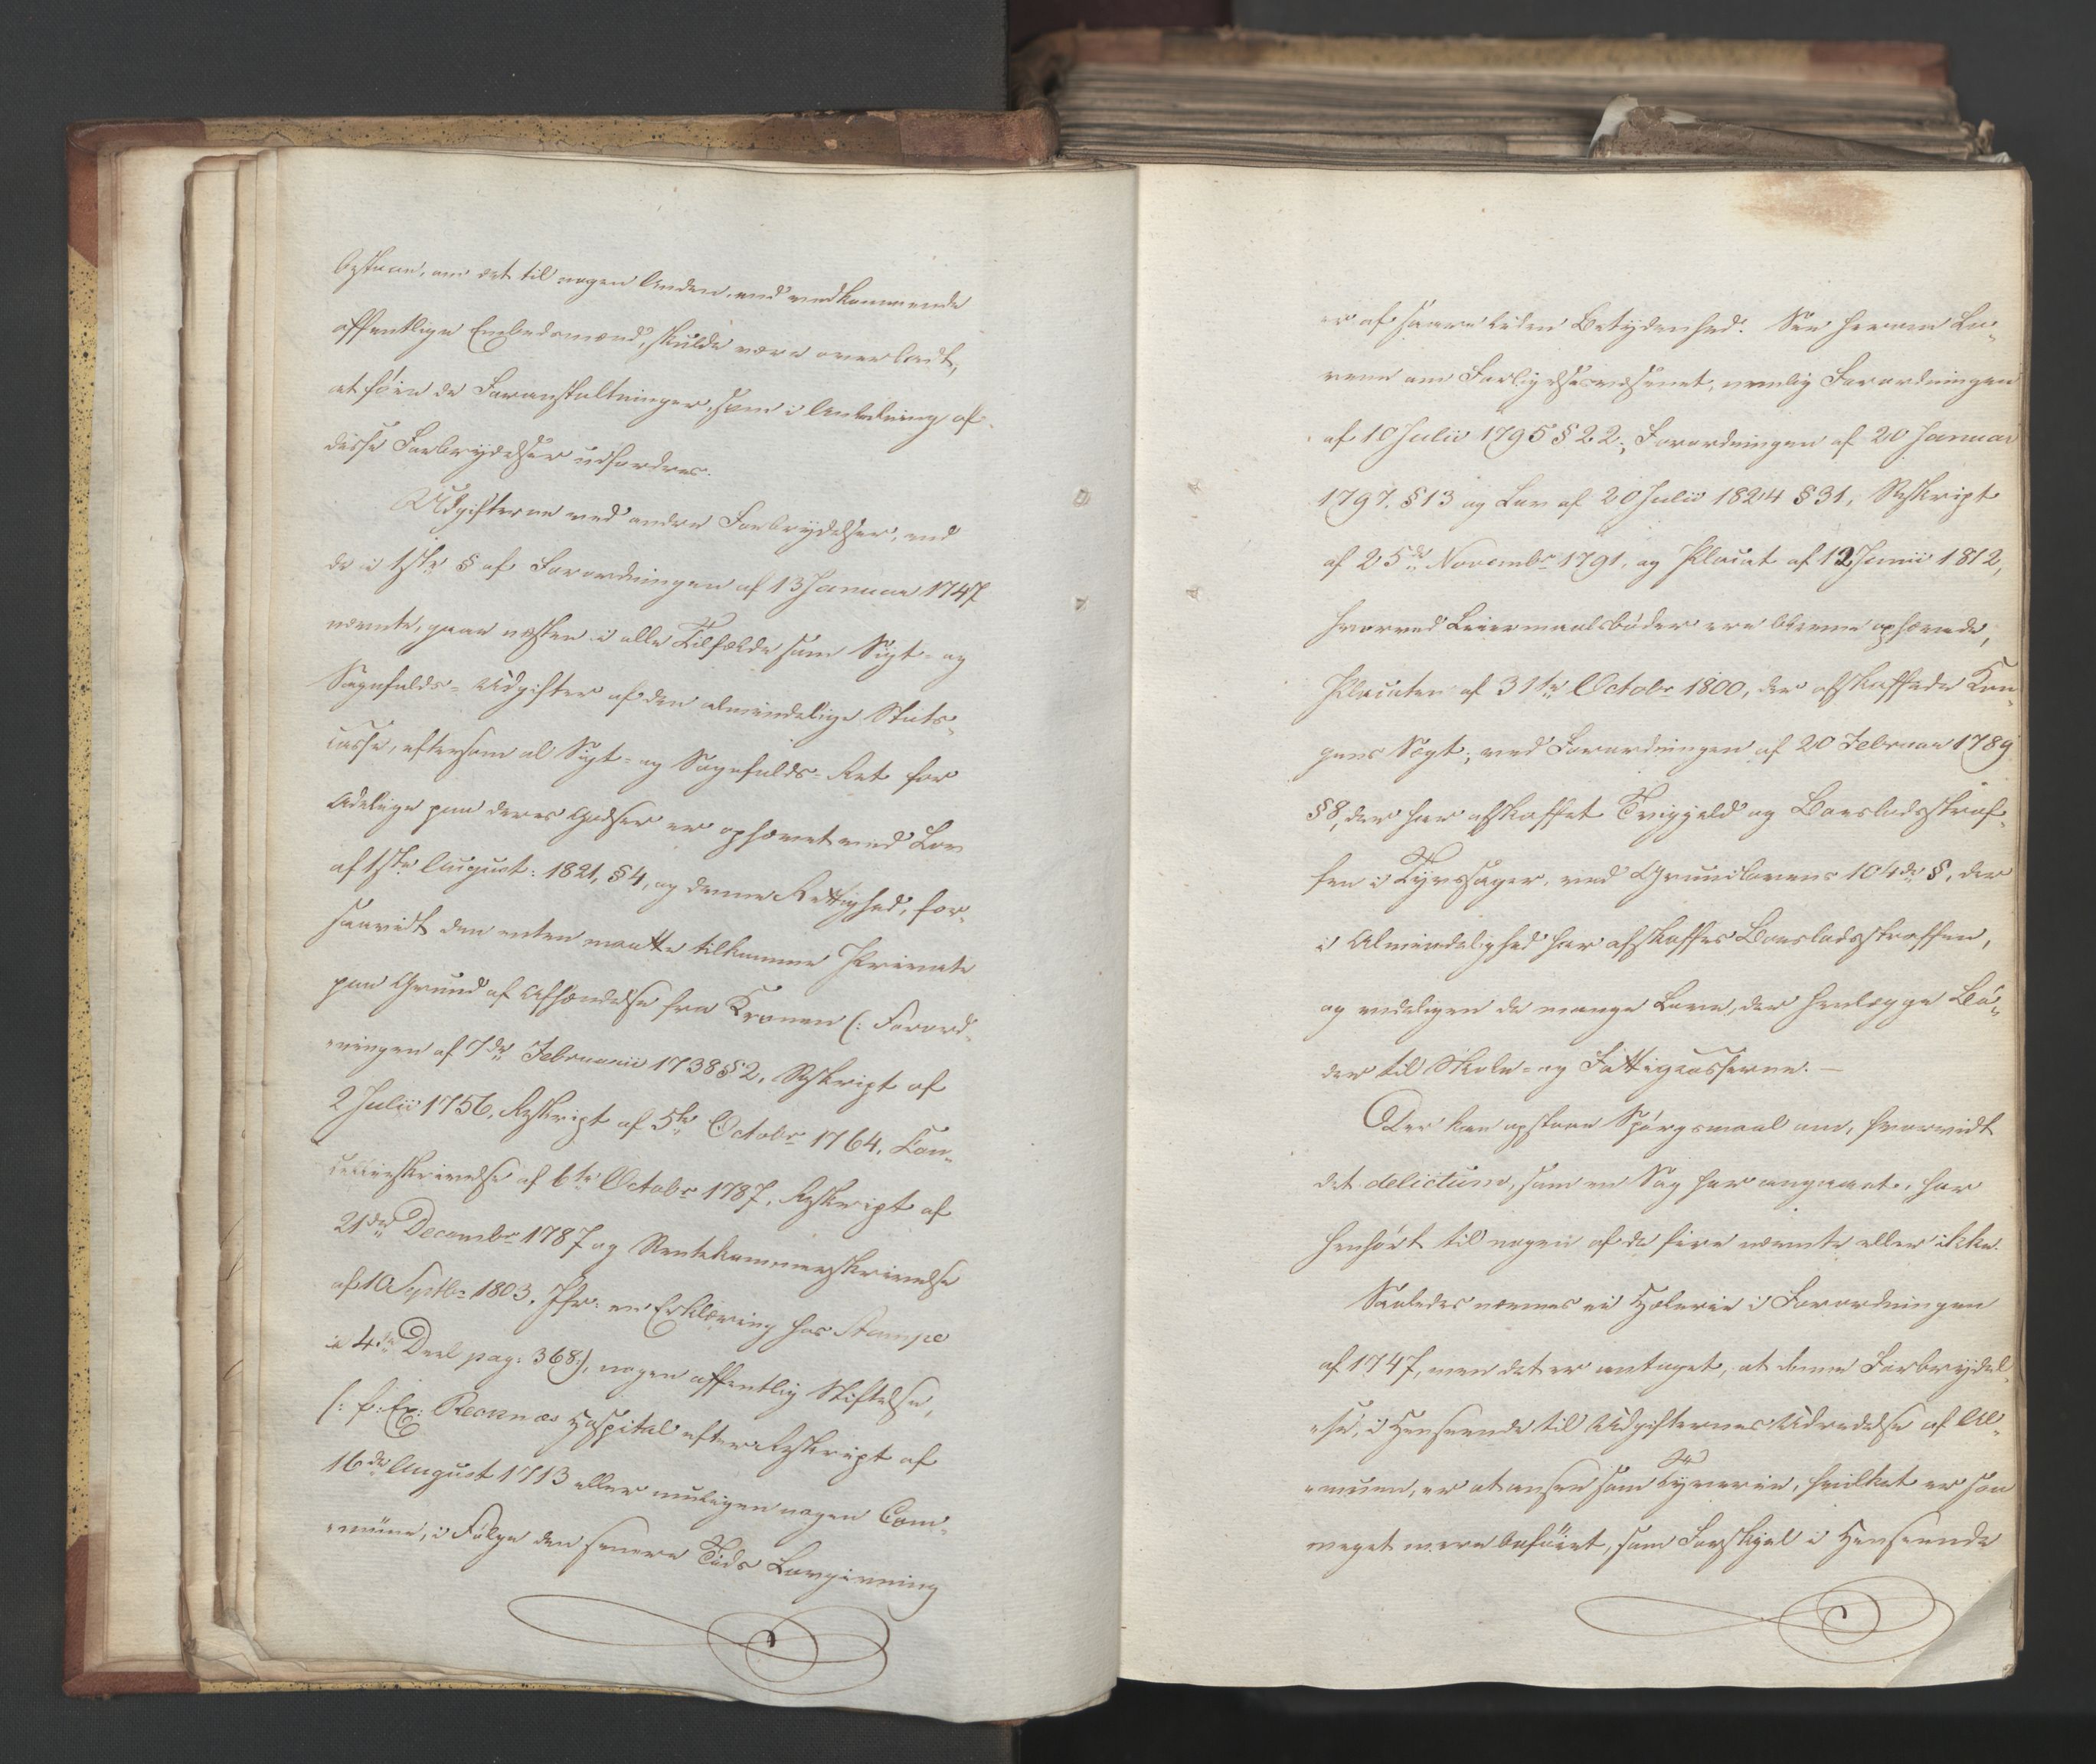 bestaae, om det til nogen Anden, end vedkommende
offentlige Embedsmænd, skulde være overladt,
at føie de Foranstaltninger, som i Anledning af
disse Forbrydelser udfordres.
Udgifterne ved andre Forbrydelser, end
de i 1ste § af Forordningen af 13 Januar 1747
nævnte, gaae næsten i alle Tilfælde som Sigt- og
Sagefalds-Udgifter af den almindelige Stats-
casse, eftersom al Sigt- og Sagefalds-Ret for
Adelige paa deres Godser er ophævet ved Lov
af 1ste August: 1821, §4, og denne Rettighed, for-
saavidt den enten maatte tilkomme Private
paa Grund af Afhændelse fra Kronen (: Forord-
ningen af 7de Februarii 1738 §2, Reskript af
2 Julii 1756, Reskript af 5te Octobr 1764, Can-
celliskrivelse af 6te Octobr 1787, Reskript af
21de Decembr 1787 og Rentekammerskrivelse
af 10 Septbr 1803. Jfr: en Erklæring hos Stampe
i 4de Deel pag: 368:), nogen offentlig Stiftelse,
(: f: Ex: Reonnæs Hospital efter Reskript af
16de August 1713 eller muligen nogen Com-
mune, i Følge den senere Tids Lovgivning
er af saare liden Betydenhed. See herom Lo-
vene om Forligelsesvæsenet, nemlig Forordningen
af 10 Julii 1795 § 22, Forordningen af 20 Januar
1797, §13 og Lov af 20 Julii 1824 §31, Reskript
af 25de Novembr 1791, og Placat af 12 Junii 1812,
hvorved Leiermaalsbøder ere blevne ophævede,
Placaten af 31te Octobr 1800, der afskaffede Kon-
gens Søgt; ved Forordningen af 20 Februar 1789
§8, der har afskaffet Tvigjeld og Boeslodsstraf-
fen i Tyvssager, ved Grundlovens 104de §, der
i Almindelighed har afskaffet Boeslodsstraffen,
og endeligen de mange Love, der henlægge Bø-
der til Skole- og Fattigcasserne. —
Der kan opstaae Spørgsmaal om, hvorvidt
det delictum, som en Sag har angaaet, har
henhørt til nogen af de fire nævnte eller ikke.
Saaledes nævnes ei Hæleri i Forordningen
af 1747, men det er antaget, at denne Forbrydel-
se, i Henseende til Udgifternes Udredelse af Al-
muen, er at ansee som Tyverie, hvilket er saa
meget mere beføiet, som Forskjel i Henseende